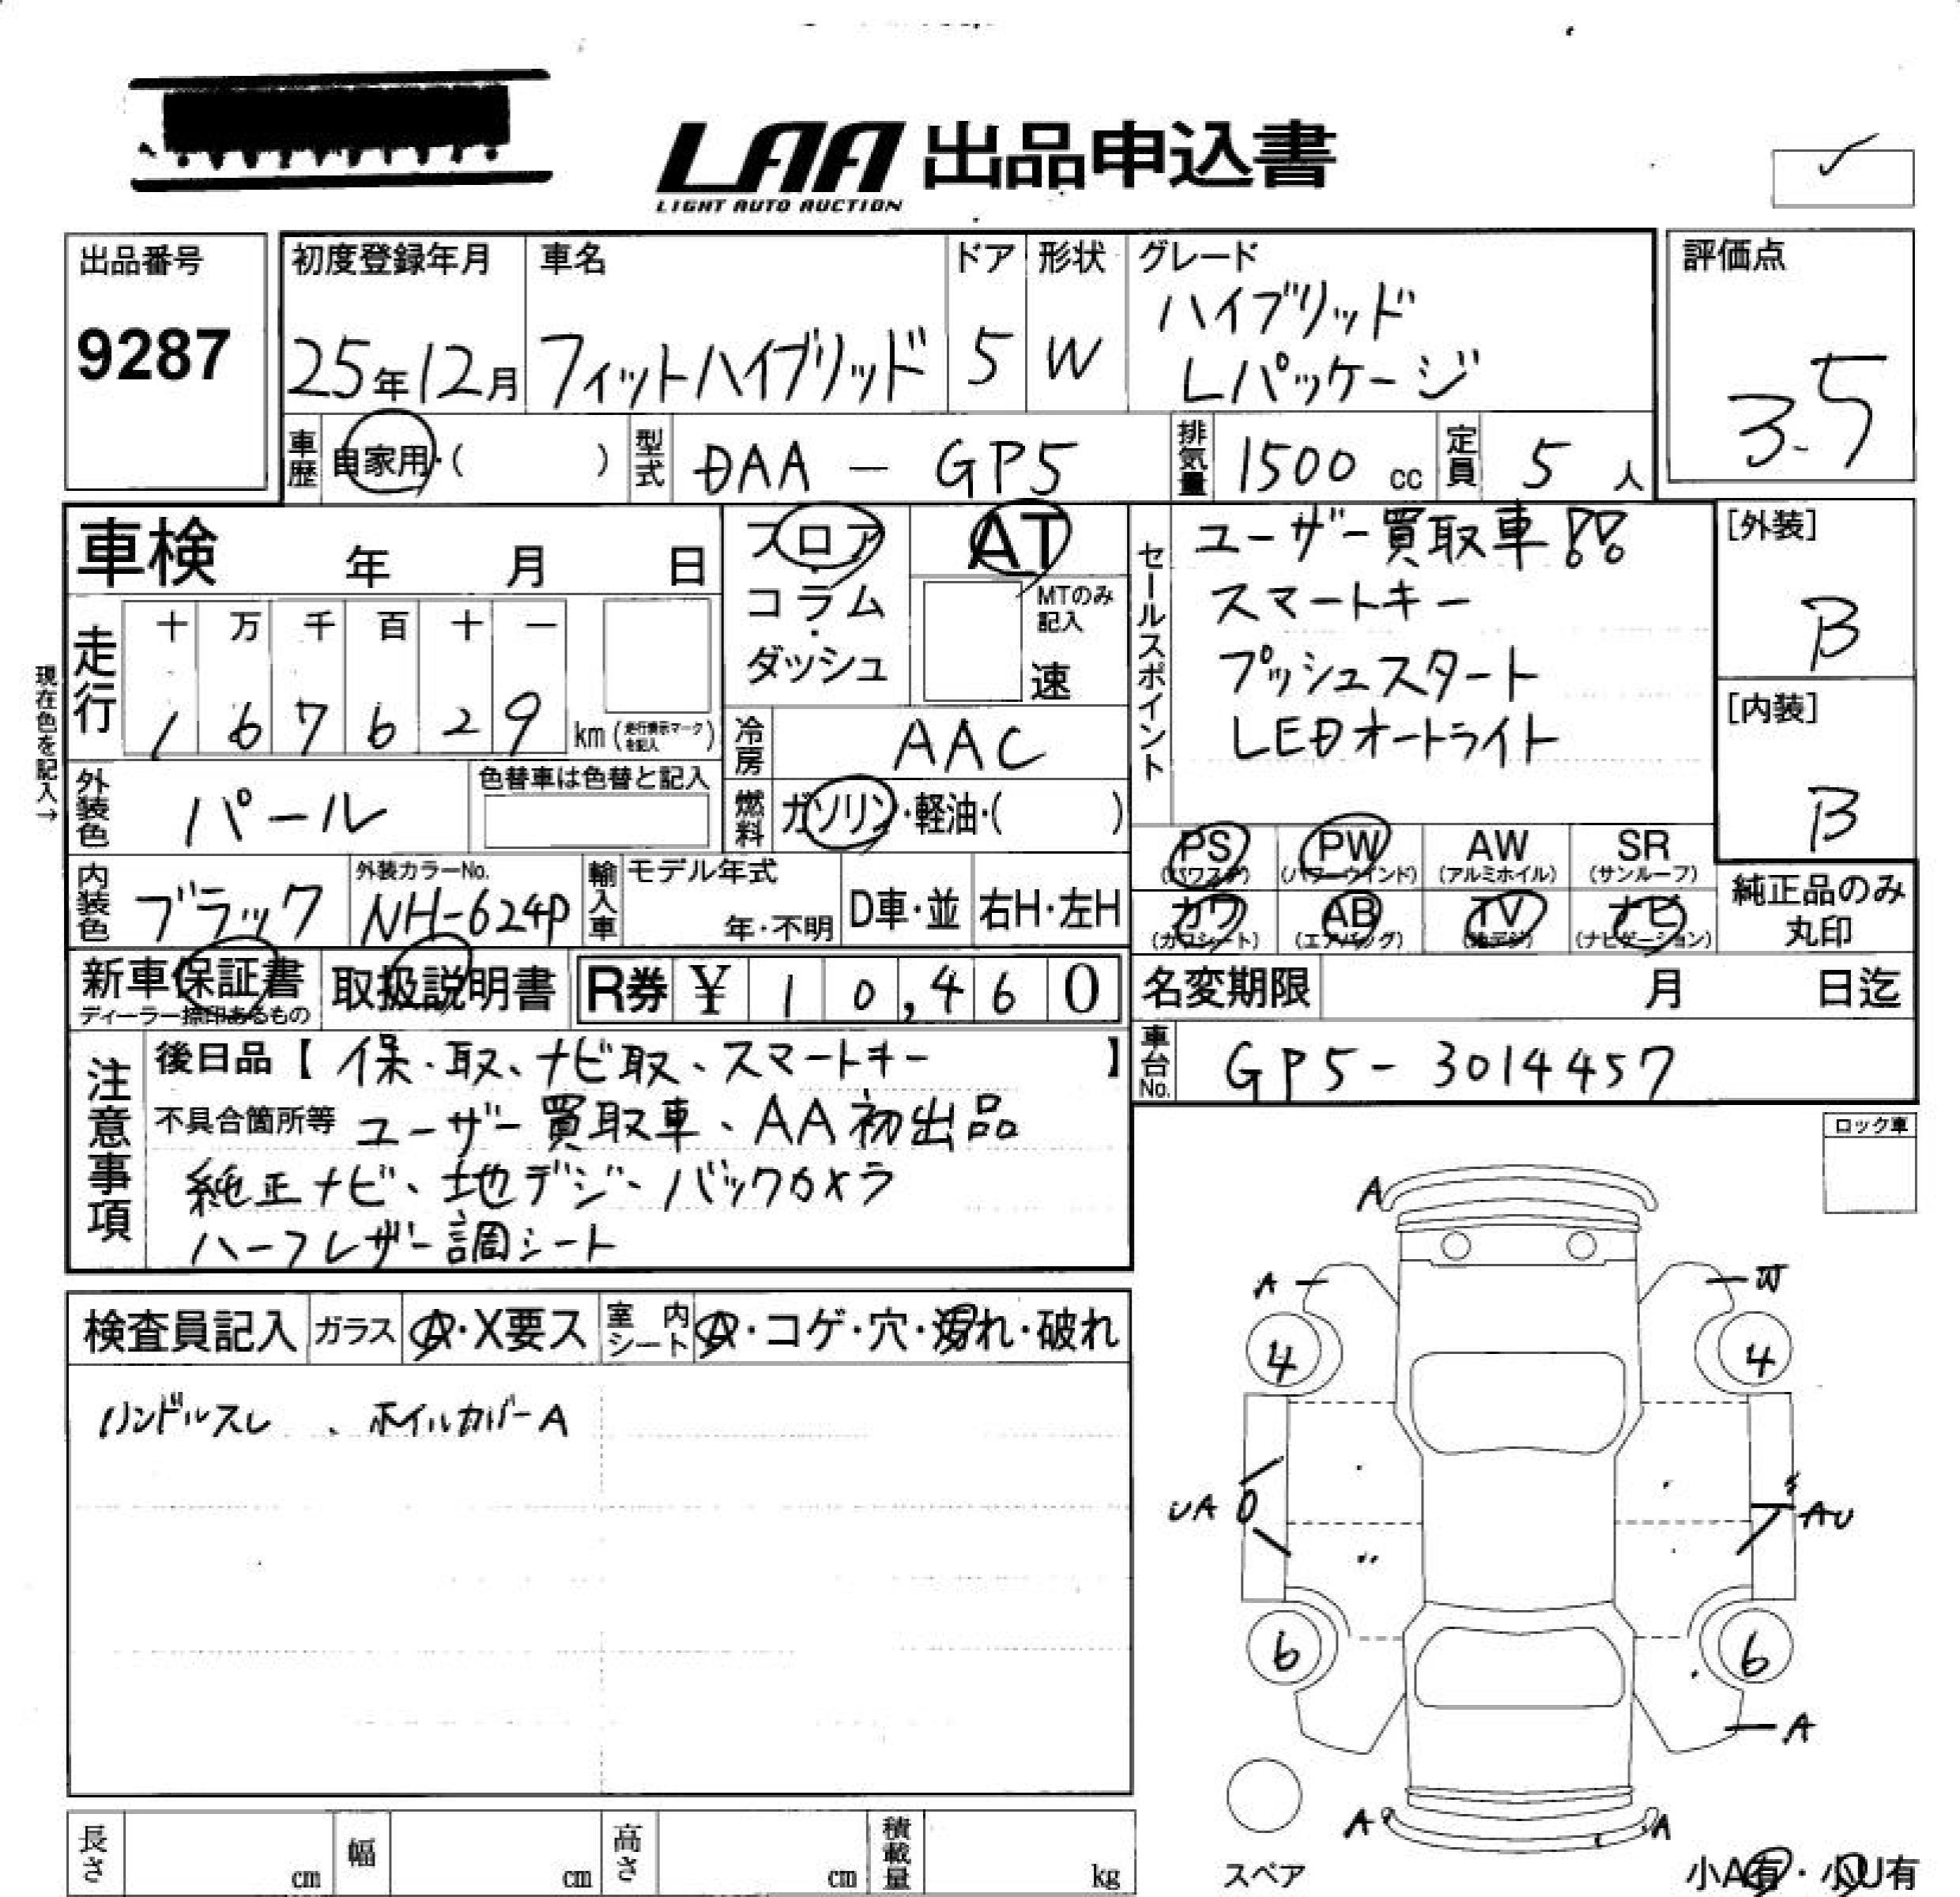 LAA 出品申込書
LIGHT AUTO AUCTION
出品番号
9287
初度登録年月
25年12月
車名
フィットハイブリッド
ドア
5
形状
W
グレード
ハイブリッド
Lパッケージ
評価点
3.5
車歴 自家用・( )
型式 DAA - GP5
排気量 1500 cc
定員 5 人
車検 年 月 日
フロア・コラム・ダッシュ
AT
MTのみ記入
速
セールスポイント
ユーザー買取車!!
スマートキー
プッシュスタート
LEDオートライト
[外装]
B
[内装]
B
現在色を記入→
走行 十 万 千 百 十 一
1 6 7 6 2 9 km (走行表示マークを記入)
冷房 AAC
外装色 パール
色替車は色替と記入
燃料 ガソリン・軽油・( )
PS (パワステ)
PW (パワーウインド)
AW (アルミホイル)
SR (サンルーフ)
カワ (カワシート)
AB (エアバッグ)
TV (地デジ)
ナビ (ナビゲーション)
純正品のみ丸印
内装色 ブラック
外装カラーNo.
NH-624P
輸入車
モデル年式
年・不明
D車・並
右H・左H
新車保証書
ディーラー捺印あるもの
取扱説明書
R券 ¥ 10,460
名変期限 月 日迄
車台No. GP5-3014457
注意事項
後日品【保・取、ナビ取、スマートキー】
不具合箇所等 ユーザー買取車、AA初出品
純正ナビ、地デジ、バックカメラ
ハーフレザー調シート
ロック車
検査員記入
ガラス A・X要ス
室内シート A・コゲ・穴・汚れ・破れ
ハンドルスレ、ホイルカバーA
A
A
W
4
4
UA
AU
6
6
A
A
A
スペア
小A有・小U有
長さ cm
幅 cm
高さ cm
積載量 kg